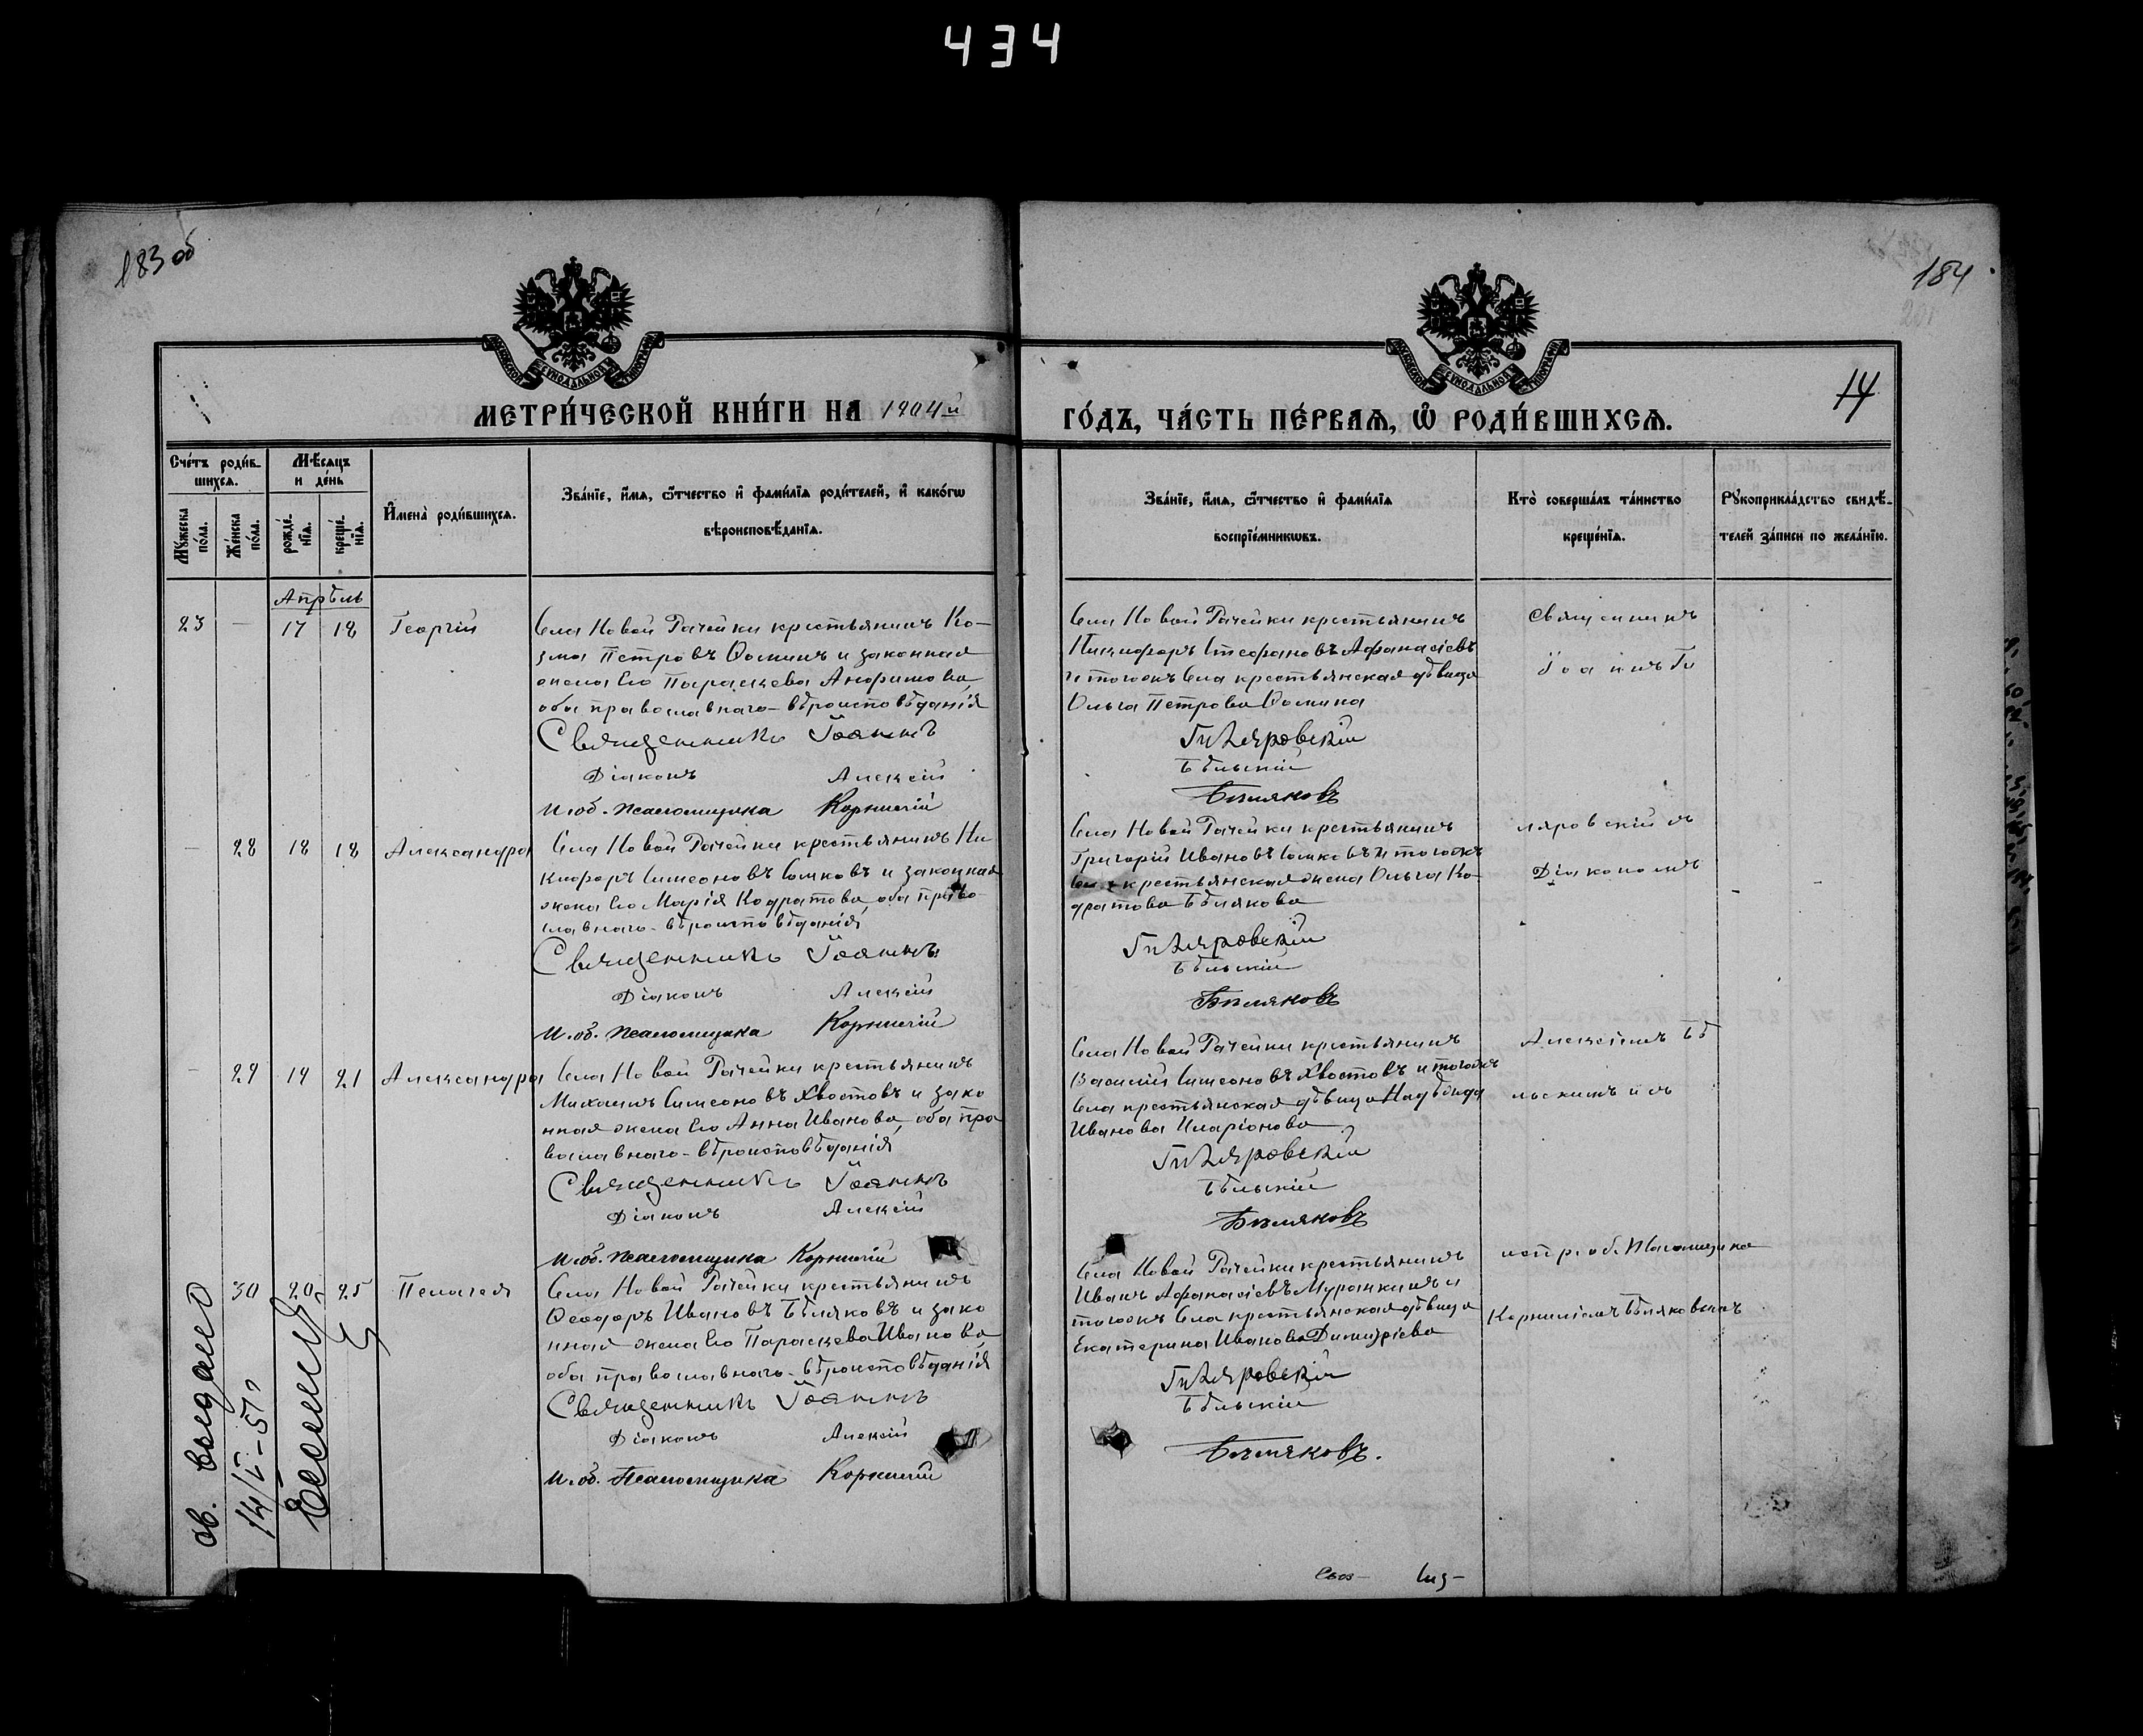 434
183 об
184
14
МЕТРИ́ЧЕСКОЙ КНИ́ГИ НА 1904й
ГО́ДЪ, ЧА́СТЬ ПЕ́РВАѦ, Ѡ҆ РОДИ́ВШИХСѦ.
Сче́тъ роди́в-
шихсѧ.
Мѣ́сѧцъ
и де́нь
И҆мена̀ роди́вшихсѧ.
Зва́нїе, и҆́мѧ, ѻ҆́тчество и҆ фами́лїѧ роди́телей, и҆ како́гѡ
вѣроисповѣ́данїѧ.
Мꙋ́жеска
по́ла.
Же́нска
по́ла.
рожде́-
нїѧ.
креще́-
нїѧ.
Зва́нїе, и҆́мѧ, ѻ҆́тчество и҆ фами́лїѧ
воспрїе́мникѡвъ.
Кто̀ соверша́лъ та́инство
креще́нїѧ.
Рꙋкоприкла́дство свидѣ́-
телей за́писи по жела́нїю.
Апрѣль
23 — 17 18 Георгій
Села Новой Рачейки крестьянинъ Ко-
зма Петровъ Ѳоминъ и законная
жена его Параскева Анфимова,
оба православнаго-вѣроисповѣданія
Священникъ Іоаннъ
Діаконъ Алексій
И.об. псаломщика Корнилій
Села Новой Рачейки крестьянинъ
Никифоръ Стефановъ Афанасіевъ
и тогожъ села крестьянская дѣвица
Ольга Петрова Ѳомина
Гиляровскій
Бѣльскій
Бѣляковъ
Священникъ
Іоаннъ Ги
— 28 18 18 Александра
Села Новой Рачейки крестьянинъ Ни
кифоръ Симеоновъ Сомковъ и законная
жена его Марія Кодратова, оба право-
славнаго-вѣроисповѣданія
Священникъ Іоаннъ
Діаконъ Алексій
И.об. псаломщика Корнилій
Села Новой Рачейки крестьянинъ
Григорій Ивановъ Сомковъ и тогожъ
села крестьянская жена Ольга Ко-
дратова Бѣлякова
Гиляровскій
Бѣльскій
Бѣляковъ
ляровскій съ
Діакономъ
— 29 19 21 Александра
Села Новой Рачейки крестьянинъ
Михаилъ Симеоновъ Хвостовъ и зако
нная жена его Анна Иванова, оба пра
вославнаго-вѣроисповѣданія
Священникъ Іоаннъ
Діаконъ Алексій
И.об. псаломщика Корнилій
Села Новой Рачейки крестьянинъ
Василій Симеоновъ Хвостовъ и тогожъ
села крестьянская дѣвица Надѣжда
Иванова Иларіонова
Гиляровскій
Бѣльскій
Бѣляковъ
Алексіемъ Бѣ
льскимъ и съ
30 20 25 Пелагея
Села Новой Рачейки крестьянинъ
Ѳеодоръ Ивановъ Бѣляковъ и зако
нная жена его Параскева Иванова,
оба православнаго-вѣроисповѣданія
Священникъ Іоаннъ
Діаконъ Алексій
И.об. Псаломщика Корнилій
Села Новой Рачейки крестьянинъ
Иванъ Афанасіевъ Муронкинъ и
тогожъ села крестьянская дѣвица
Екатерина Иванова Димитріева
Гиляровскій
Бѣльскій
Бѣляковъ.
испр. об. Псаломщика
Корниліемъ Бѣляковымъ
св. выдано
14/V-51г